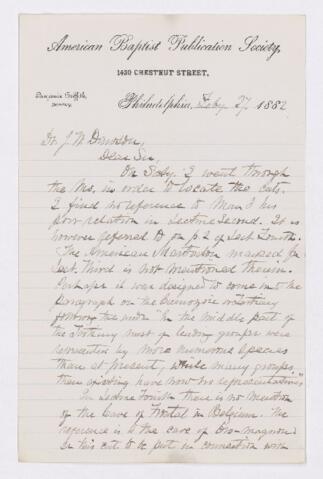 American Baptist Publication Society,
1420 CHESTNUT STREET,
Benjamin Griffith,
Philadelphia, Feby 27 1882
Dr. J. W. Dawson,
Dear Sir,
On Saty. I went through
the Ms. in order to locate the cuts.
I find no reference to Man & his
poor relation in Lecture Second. It is
however referred to on p 2 of Lect. Fourth.
The American Mastodon marked for
Lect. Third is not mentioned therein.
Perhaps it was designed to come into the
paragraph on the Cainozoic or Tertiary
following the words "In the middle part of
the Tertiary most of leading groups were
represented by more numerous species
than at present, while many groups,
then existing have now no representatives"
In Lecture Fourth there is no mention
of the Cave of Frontal in Belgium. The
reference is to the cave of Cro-magnon
Is this cut to be put in connection with